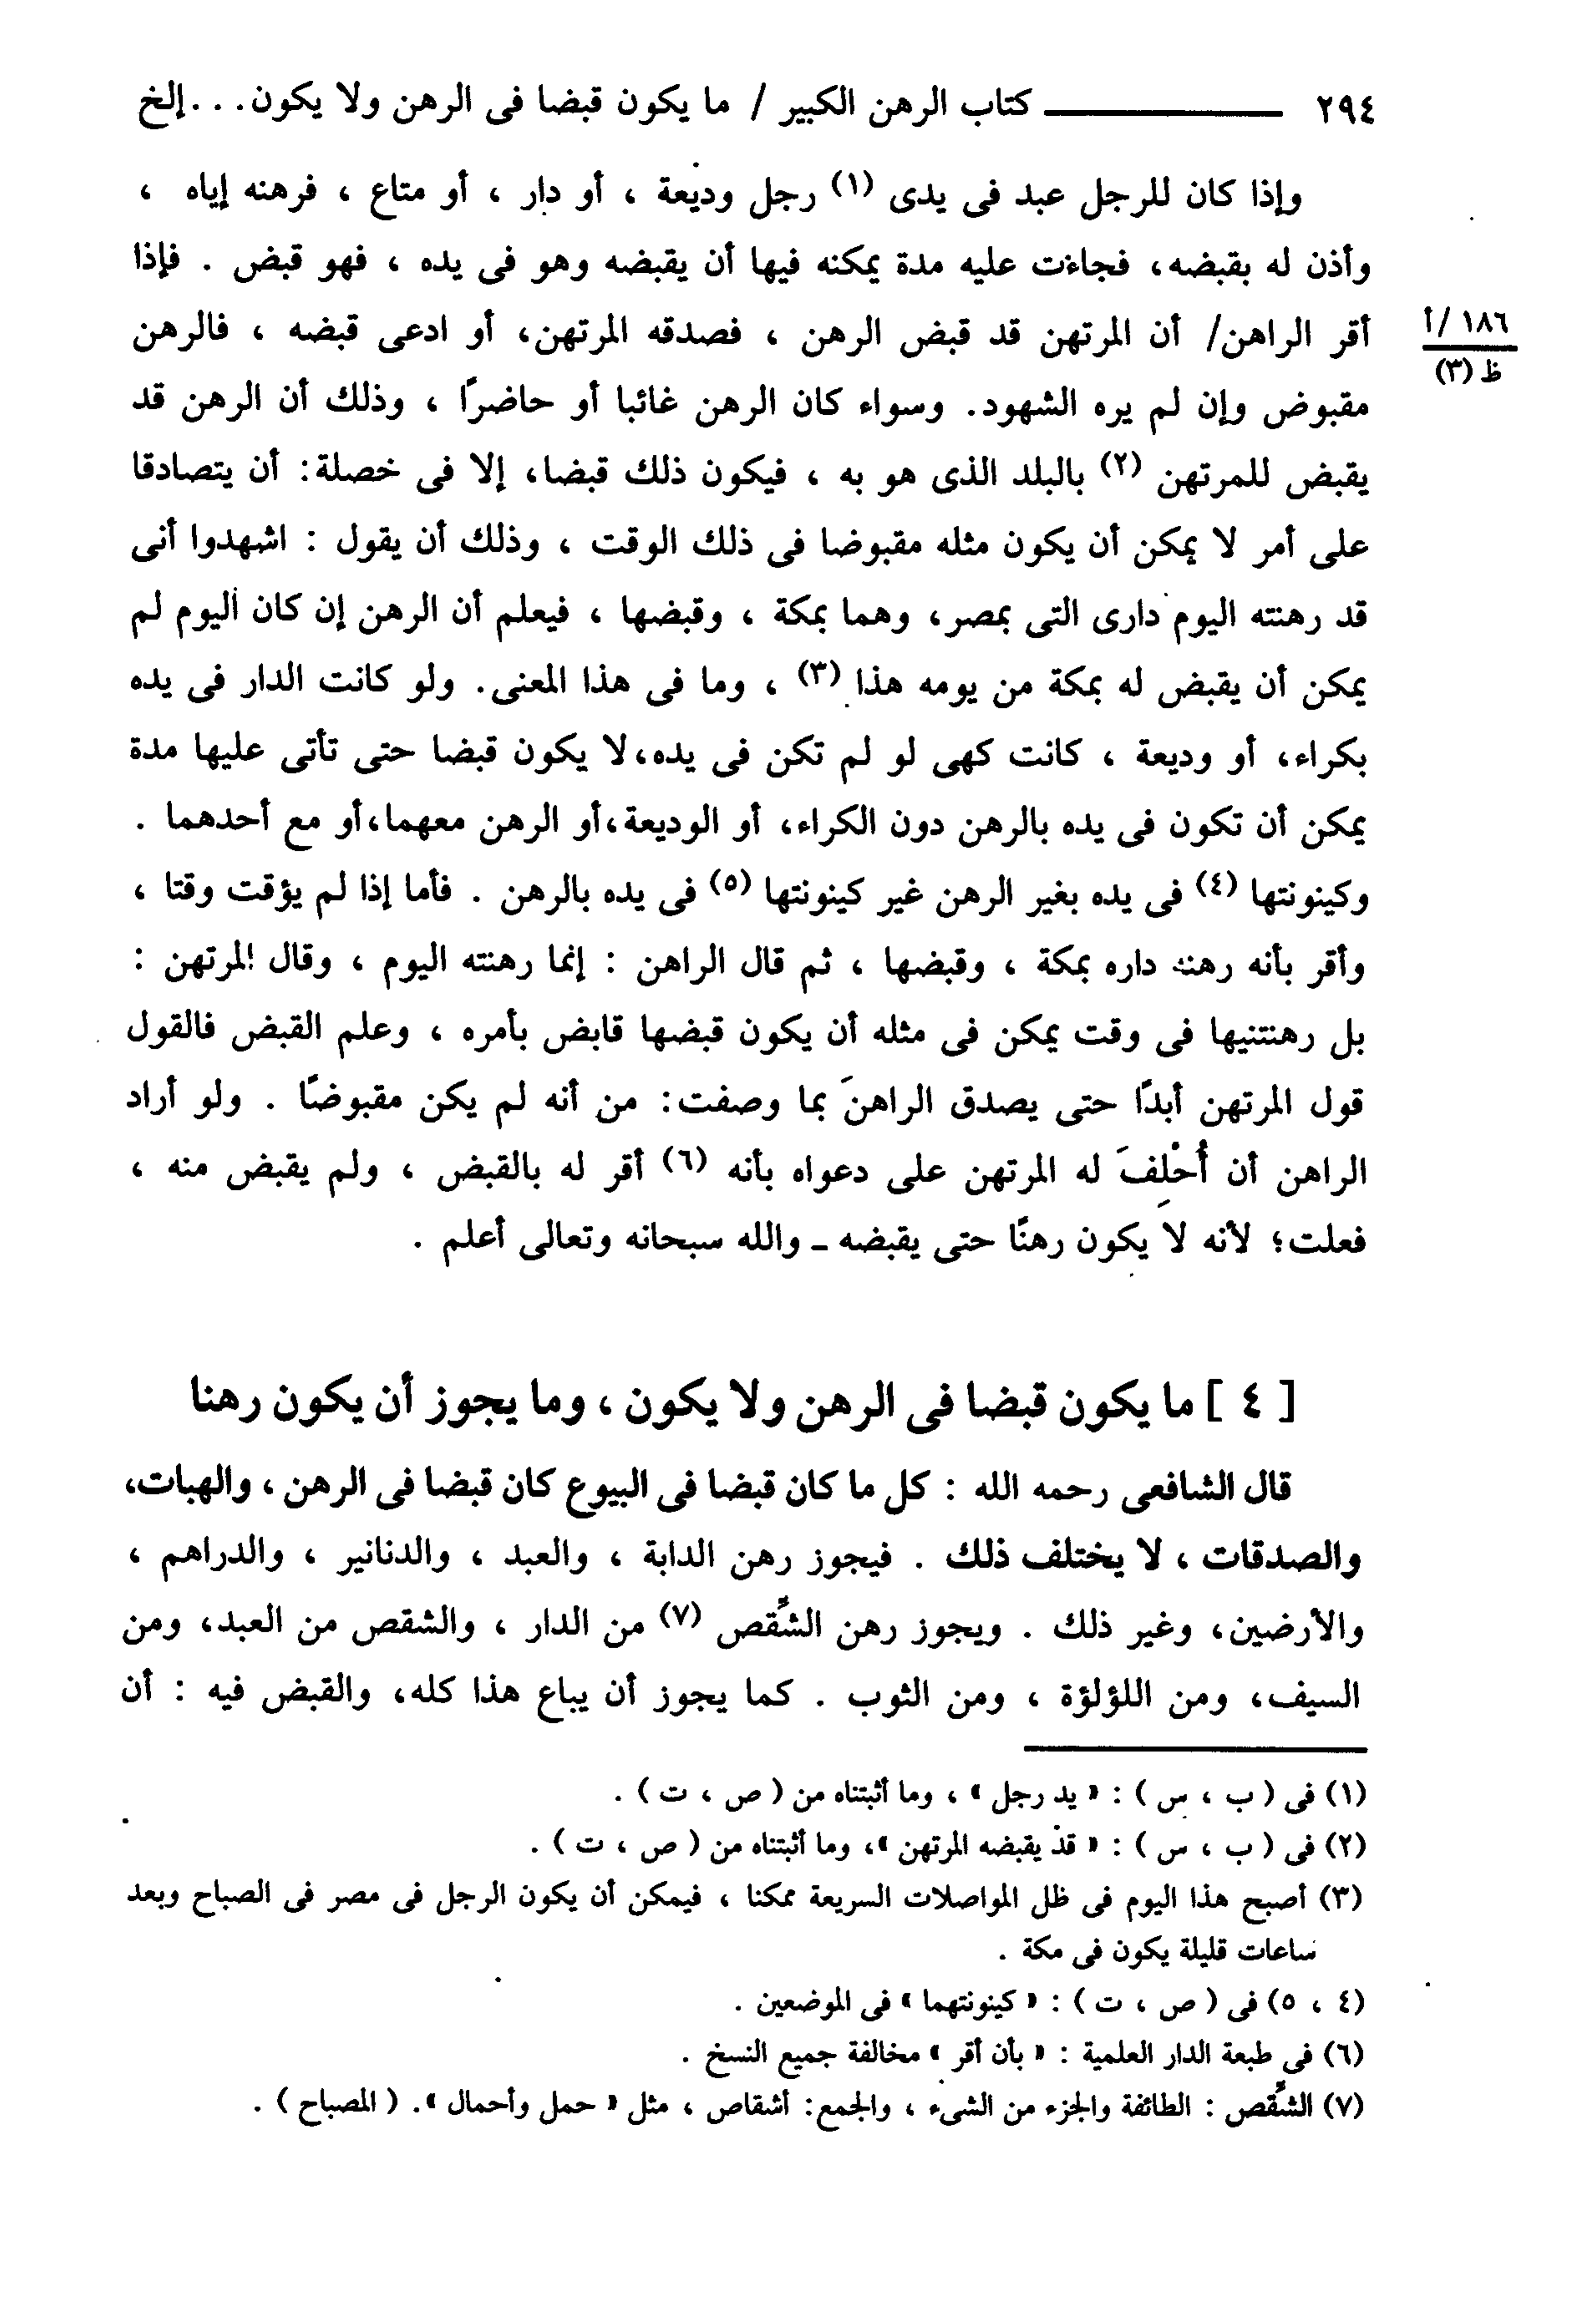 ٢٩٤ ــــــــــــــــ كتاب الرهن الكبير / ما يكون قبضا فى الرهن ولا يكون . . . إلخ
وإذا كان للرجل عبد فى يدى (١) رجل وديعة ، أو دار ، أو متاع ، فرهنه إياه ،
وأذن له بقبضه، فجاءت عليه مدة يمكنه فيها أن يقبضه وهو فى يده ، فهو قبض . فإذا
أقر الراهن/ أن المرتهن قد قبض الرهن ، فصدقه المرتهن، أو ادعى قبضه ، فالرهن
١٨٦ /أ
ظ (٣)
مقبوض وإن لم يره الشهود. وسواء كان الرهن غائبا أو حاضرًا ، وذلك أن الرهن قد
يقبض للمرتهن (٢) بالبلد الذى هو به ، فيكون ذلك قبضا، إلا فى خصلة: أن يتصادقا
على أمر لا يمكن أن يكون مثله مقبوضا فى ذلك الوقت ، وذلك أن يقول : اشهدوا أنى
قد رهنته اليوم دارى التى بمصر، وهما بمكة ، وقبضها ، فيعلم أن الرهن إن كان اليوم لم
يمكن أن يقبض له بمكة من يومه هذا (٣) ، وما فى هذا المعنى. ولو كانت الدار فى يده
بكراء، أو وديعة ، كانت كهى لو لم تكن فى يده،لا يكون قبضا حتى تأتى عليها مدة
يمكن أن تكون فى يده بالرهن دون الكراء، أو الوديعة،أو الرهن معهما،أو مع أحدهما .
وكينونتها (٤) فى يده بغير الرهن غير كينونتها (٥) فى يده بالرهن . فأما إذا لم يؤقت وقتا ،
وأقر بأنه رهنه داره بمكة ، وقبضها ، ثم قال الراهن : إنما رهنته اليوم ، وقال المرتهن :
بل رهنتنيها فى وقت يمكن فى مثله أن يكون قبضها قابض بأمره ، وعلم القبض فالقول
قول المرتهن أبدًا حتى يصدق الراهنَ بما وصفت: من أنه لم يكن مقبوضًا . ولو أراد
الراهن أن أُحْلِفَ له المرتهن على دعواه بأنه (٦) أقر له بالقبض ، ولم يقبض منه ،
فعلت؛ لأنه لا يكون رهنًا حتى يقبضه ـ والله سبحانه وتعالى أعلم .
[ ٤ ] ما يكون قبضا فى الرهن ولا يكون ، وما يجوز أن يكون رهنا
قال الشافعى رحمه الله : كل ما كان قبضا فى البيوع كان قبضا فى الرهن ، والهبات،
والصدقات ، لا يختلف ذلك . فيجوز رهن الدابة ، والعبد ، والدنانير ، والدراهم ،
والأرضين، وغير ذلك . ويجوز رهن الشِّقص (٧) من الدار ، والشقص من العبد، ومن
السيف، ومن اللؤلؤة ، ومن الثوب . كما يجوز أن يباع هذا كله، والقبض فيه : أن
(١) فى ( ب ، س ) : « يد رجل » ، وما أثبتناه من ( ص ، ت ) .
(٢) فى ( ب ، س ) : « قد يقبضه المرتهن »، وما أثبتناه من ( ص ، ت ) .
(٣) أصبح هذا اليوم فى ظل المواصلات السريعة ممكنا ، فيمكن أن يكون الرجل فى مصر فى الصباح وبعد
ساعات قليلة يكون فى مكة .
(٤ ، ٥) فى ( ص ، ت ) : « كينونتهما » فى الموضعين .
(٦) فى طبعة الدار العلمية : « بأن أقر » مخالفة جميع النسخ .
(٧) الشِّقص : الطائفة والجزء من الشىء ، والجمع: أشقاص ، مثل « حمل وأحمال ». ( المصباح ) .